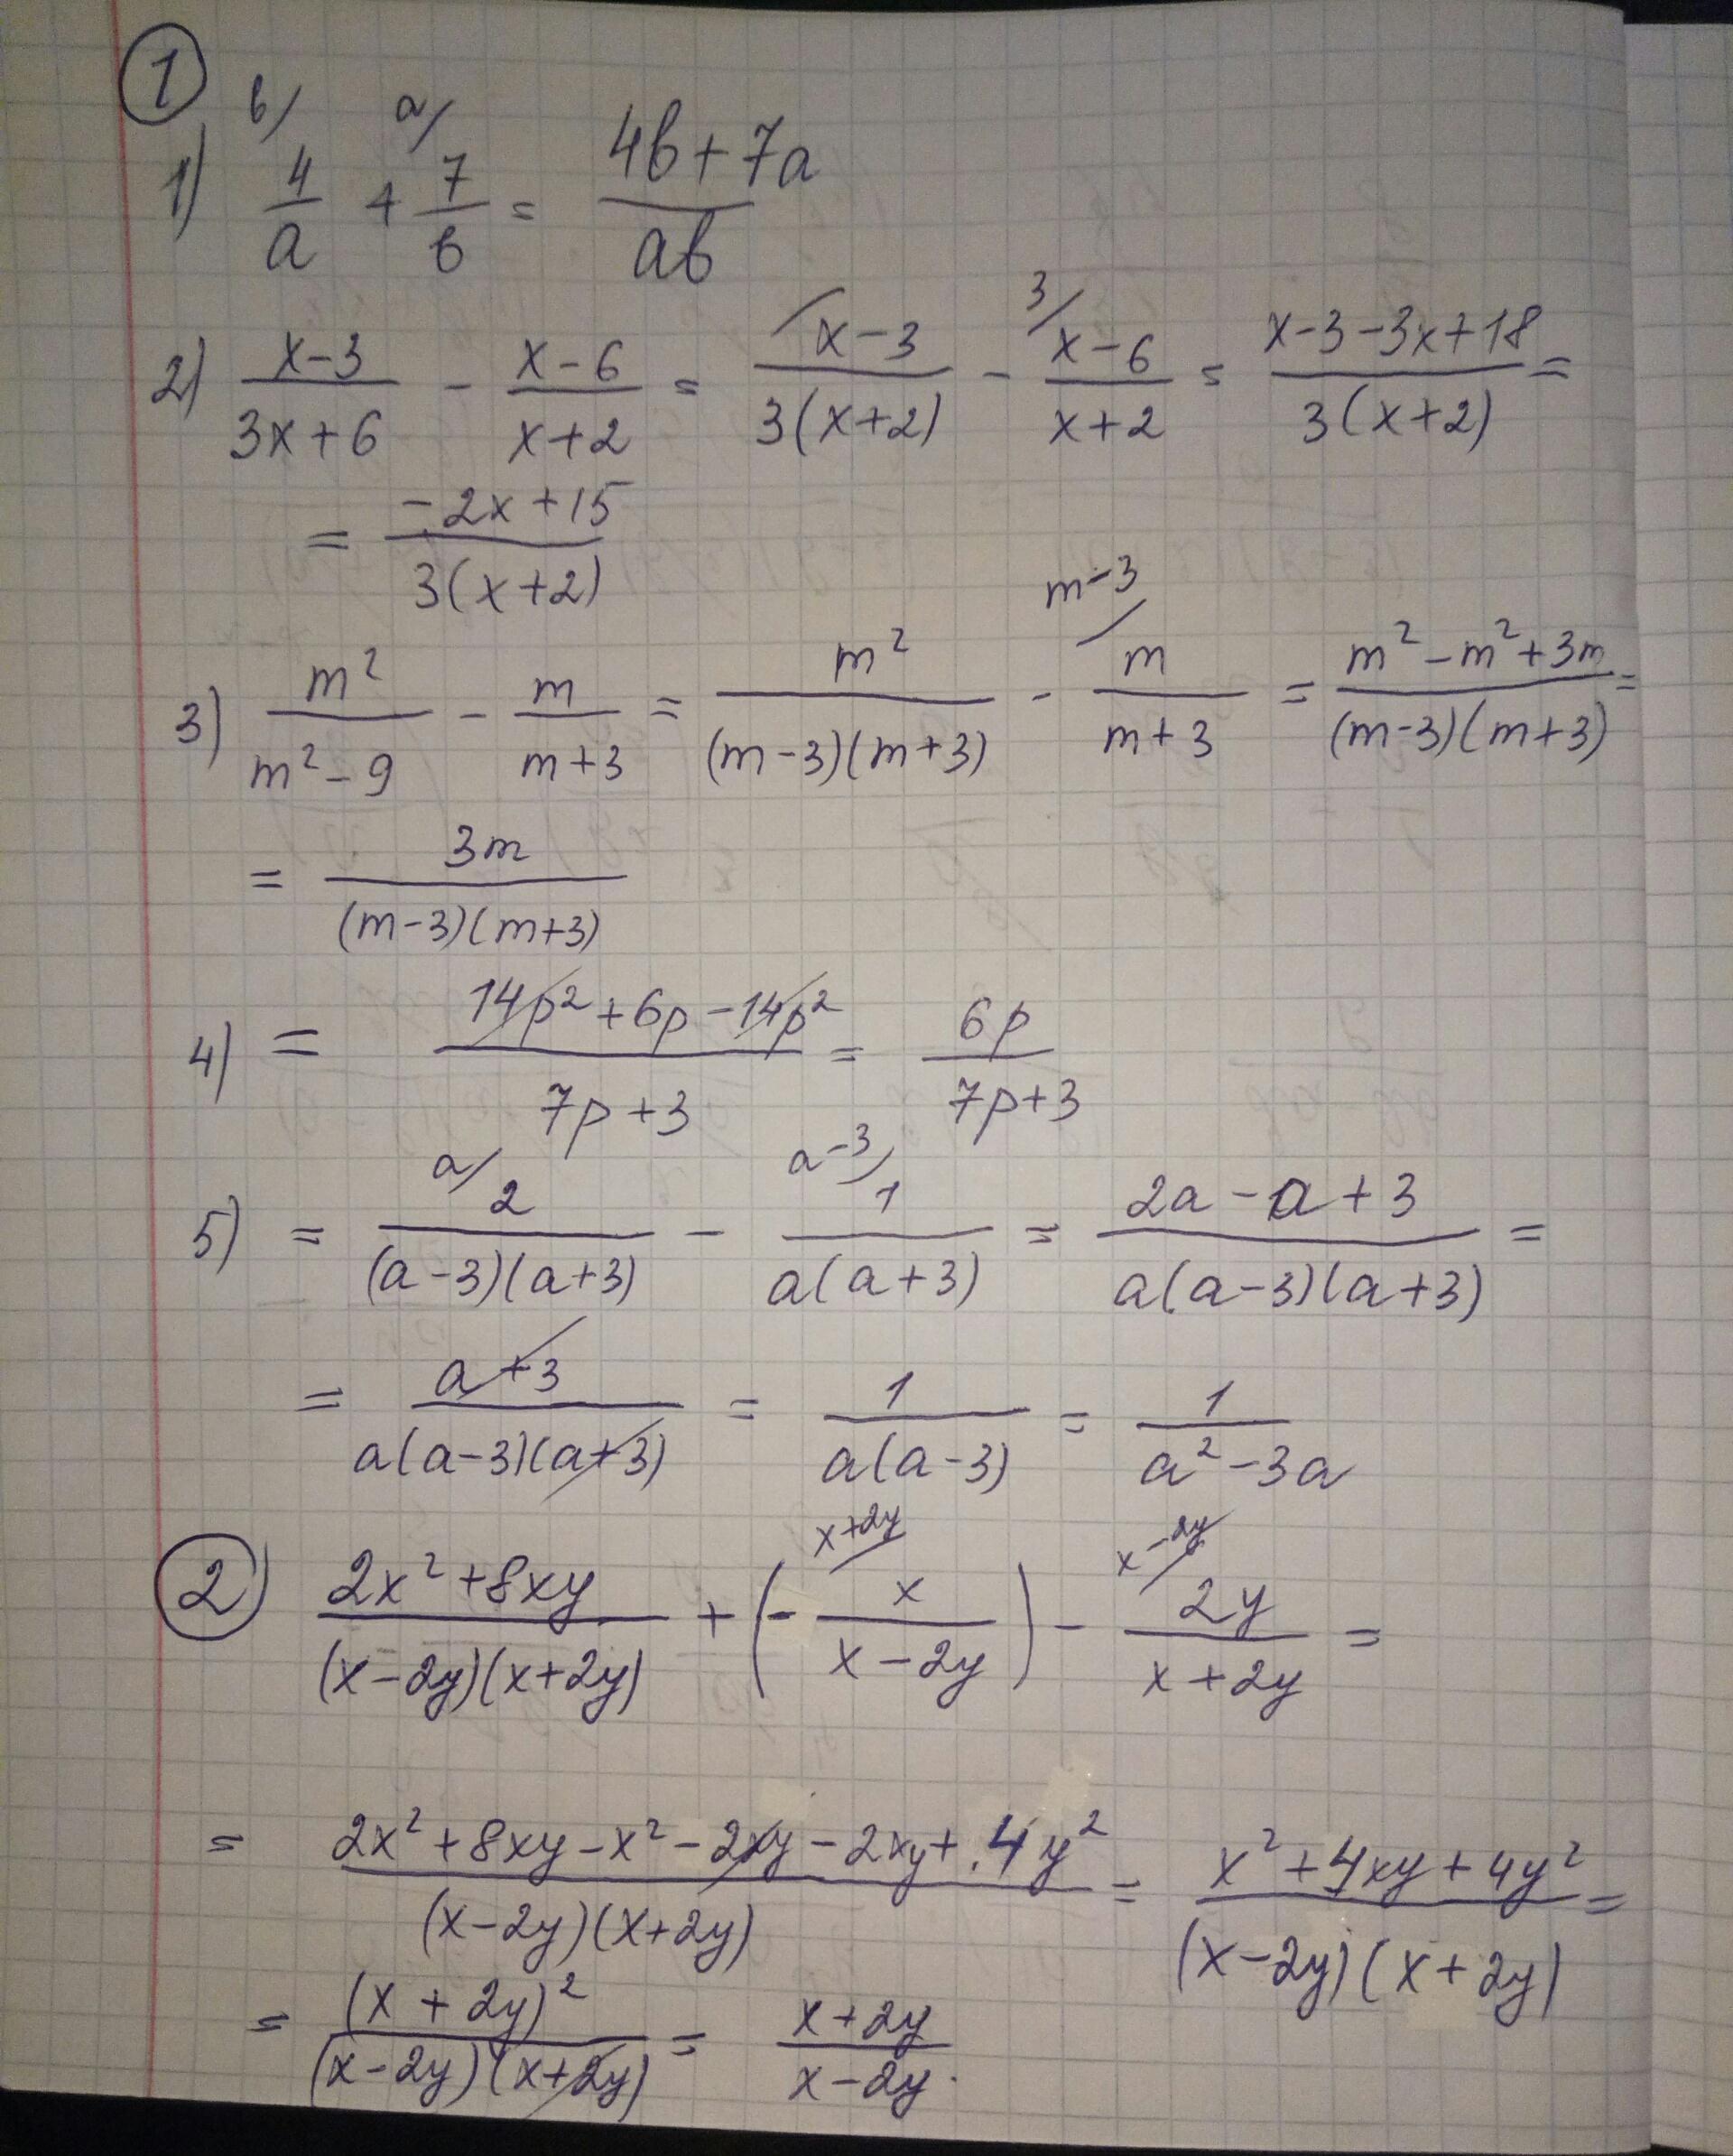 ①
в/ a/
1) 4/a + 7/в = (4в+7a)/(aв)
2) (x-3)/(3x+6) - (x-6)/(x+2) = (x-3)/(3(x+2)) - ³⁄ (x-6)/(x+2) = (x-3-3x+18)/(3(x+2)) =
= (-2x+15)/(3(x+2))
3) m²/(m²-9) - m/(m+3) = m²/((m-3)(m+3)) - m-3/ m/(m+3) = (m²-m²+3m)/((m-3)(m+3)) =
= 3m/((m-3)(m+3))
4) = (14p²+6p-14p²)/(7p+3) = 6p/(7p+3)
5) = a/ 2/((a-3)(a+3)) - a-3/ 1/(a(a+3)) = (2a-a+3)/(a(a-3)(a+3)) =
= (a+3)/(a(a-3)(a+3)) = 1/(a(a-3)) = 1/(a²-3a)
② (2x²+8xy)/((x-2y)(x+2y)) + (- x+2y/ x/(x-2y)) - x-2y/ 2y/(x+2y) =
= (2x²+8xy-x²-2xy-2xy+4y²)/((x-2y)(x+2y)) = (x²+4xy+4y²)/((x-2y)(x+2y)) =
= (x+2y)²/((x-2y)(x+2y)) = (x+2y)/(x-2y).